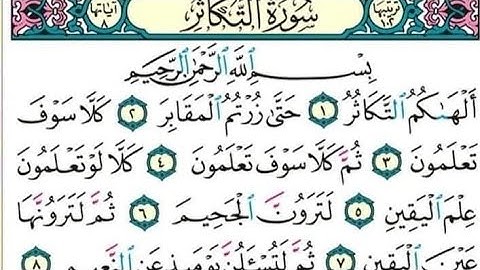 ترتيبها ١٠٢ سُورَةُ التَّكَاثُرِ آيَاتُهَا
بِسْمِ ٱللَّهِ ٱلرَّحْمَٰنِ ٱلرَّحِيمِ
أَلْهَىٰكُمُ ٱلتَّكَاثُرُ ١ حَتَّىٰ زُرْتُمُ ٱلْمَقَابِرَ ٢ كَلَّا سَوْفَ
تَعْلَمُونَ ٣ ثُمَّ كَلَّا سَوْفَ تَعْلَمُونَ ٤ كَلَّا لَوْ تَعْلَمُونَ
عِلْمَ ٱلْيَقِينِ ٥ لَتَرَوُنَّ ٱلْجَحِيمَ ٦ ثُمَّ لَتَرَوُنَّهَا
عَيْنَ ٱلْيَقِينِ ٧ ثُمَّ لَتُسْـَٔلُنَّ يَوْمَئِذٍ عَنِ ٱلنَّعِيمِ ٨